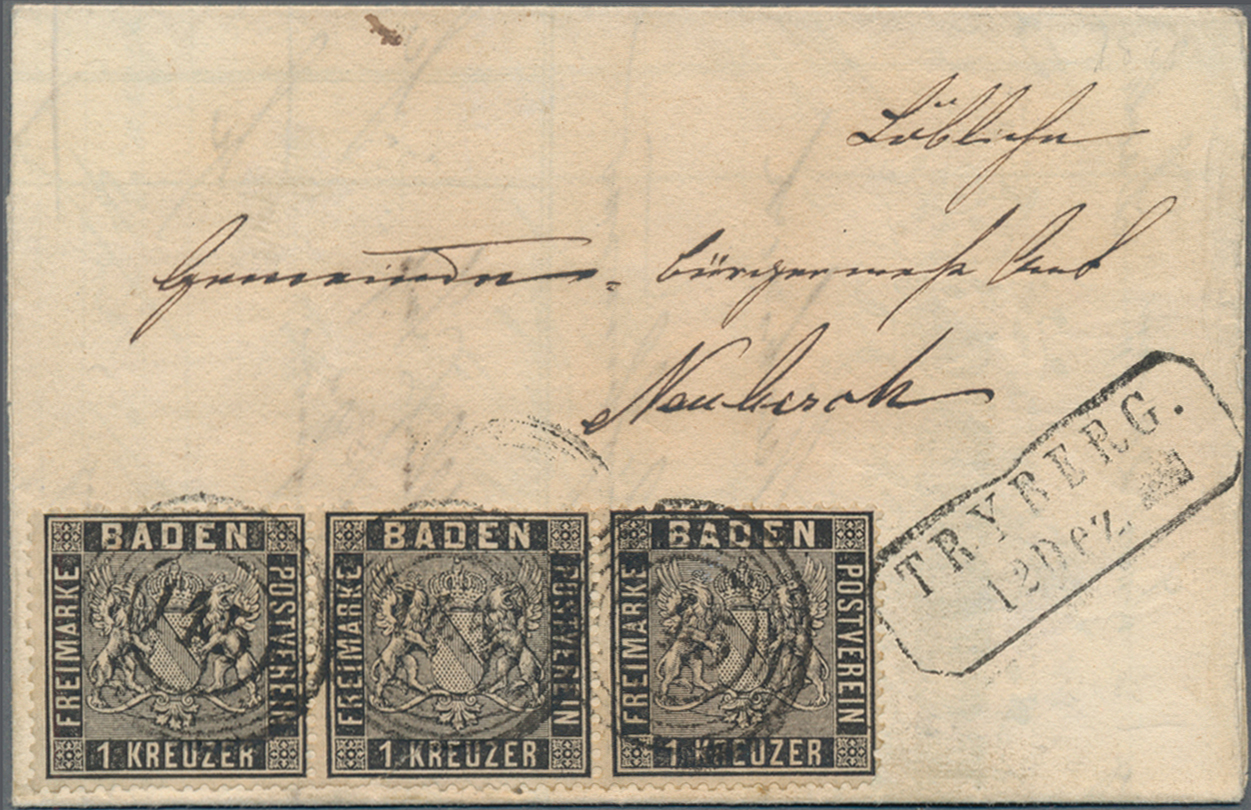 Löbliche
Gemeinde-Bürgermeister Amt
Neukirch
TRYBERG.
12 Dez.
BADEN
FREIMARKE
POSTVEREIN
1 KREUZER
BADEN
FREIMARKE
POSTVEREIN
1 KREUZER
BADEN
FREIMARKE
POSTVEREIN
1 KREUZER